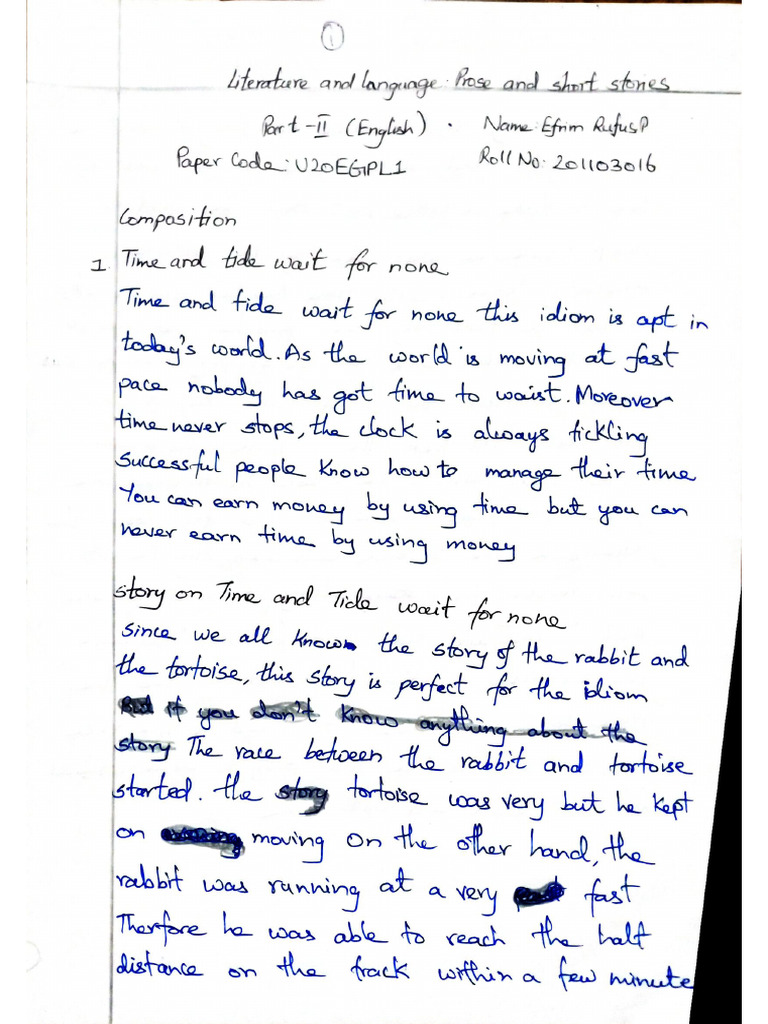 1
Literature and language: Prose and short stories
Part-II (English) . Name: Efrim Rufus P
Paper Code: U20EGPL1 Roll No: 201103016
Composition
1. Time and tide wait for none
Time and tide wait for none this idiom is apt in
today's world. As the world is moving at fast
pace nobody has got time to waist. Moreover
time never stops, the clock is always tickling
successful people know how to manage their time
You can earn money by using time but you can
never earn time by using money
Story on Time and Tide wait for none
Since we all know the story of the rabbit and
the tortoise, this story is perfect for the idiom
if you don't know anything about the
story The race between the rabbit and tortoise
started. the story tortoise was very but he kept
on moving on the other hand, the
rabbit was running at a very fast
Therefore he was able to reach the half
distance on the track within a few minute